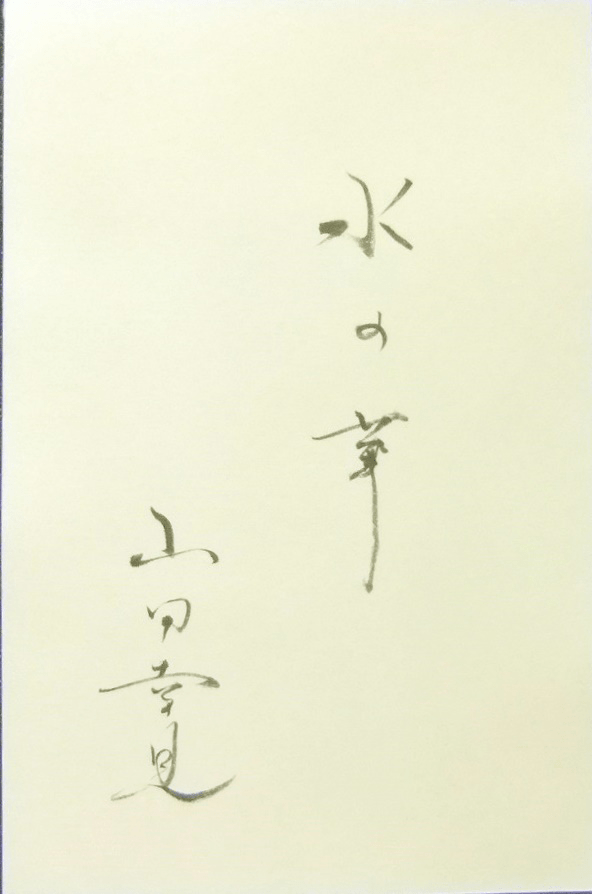 水の華
山田幸見